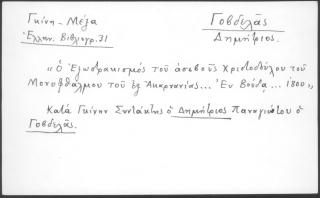 Γκίνη - Μέξα
Γοβδελᾶς
Δημήτριος.
Ἑλλην. Βιβλιογρ. 31
"Ὁ Ἐξωστρακισμὸς τοῦ ἀσεβοῦς Χριστοδούλου τοῦ
Μονοφθάλμου τοῦ ἐξ Ἀκαρνανίας... Ἐν Βούδᾳ... 1800"
Κατὰ Γκίνην Συντάκτης ὁ Δημήτριος Παναγιώτου ὁ
Γοβδελᾶς.